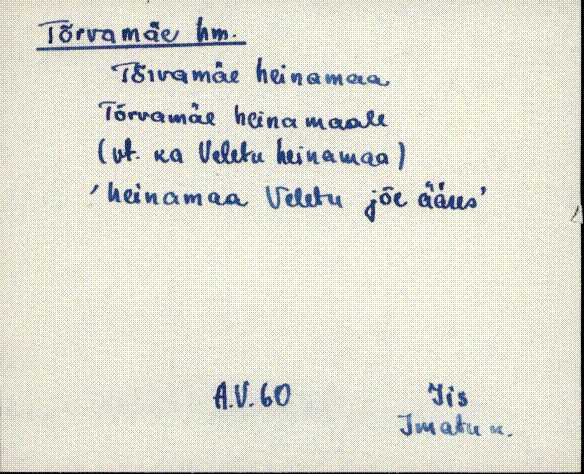 Tõrvamäe hm.
Tõrvamäe heinamaa
Tõrvamäe heinamaale
(vt. ka Veletu heinamaa)
'heinamaa Veletu jõe ääres'
A.V. 60
Iis
Imatu k.